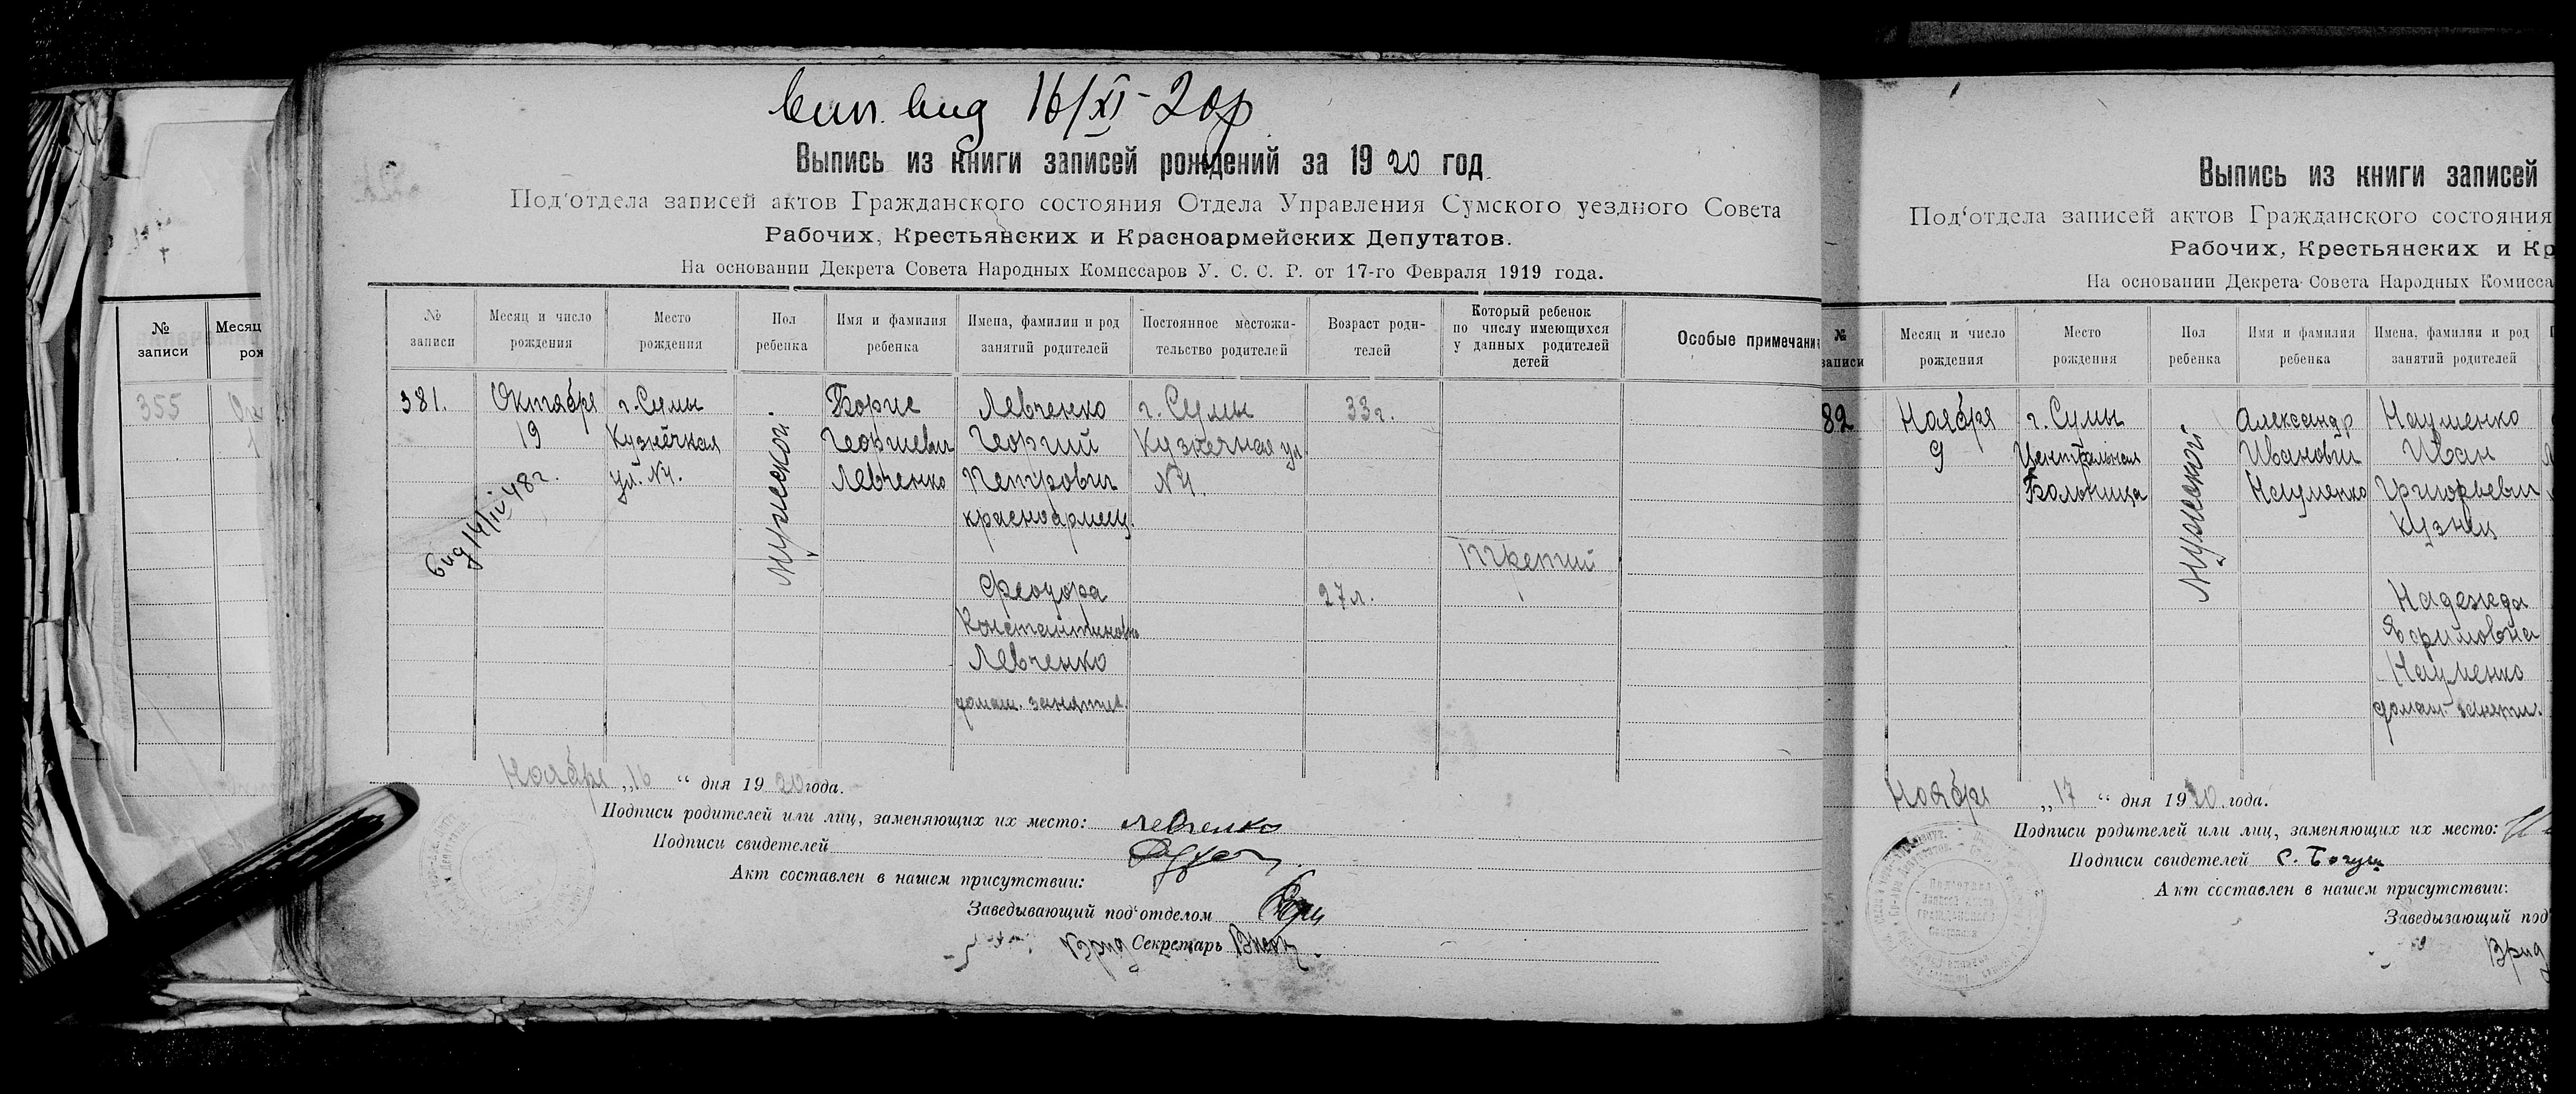 вып. выд 16/XI-20р
Выпись из книги записей рождений за 1920 год
Под'отдела записей актов Гражданского состояния Отдела Управления Сумского уездного Совета
Рабочих, Крестьянских и Красноармейских Депутатов.
На основании Декрета Совета Народных Комиссаров У. С. С. Р. от 17-го Февраля 1919 года.
№ записи
Месяц и число рождения
Место рождения
Пол ребенка
Имя и фамилия ребенка
Имена, фамилии и род занятий родителей
Постоянное местожительство родителей
Возраст родителей
Который ребенок по числу имеющихся у данных родителей детей
Особые примечани
381.
Октября
19
г. Сумы
Кузнечная
ул. №4.
Мужеской.
Борис
Георгиевич
Левченко
Левченко
Георгий
Петрович
красноармеец.
Феодора
Константиновна
Левченко
домаш. занятие.
г. Сумы
Кузнечная ул
№4.
33 г.
27 л.
Третий
Вид 14/IV 48 г.
Ноября „16 “ дня 1920 года.
Подписи родителей или лиц, заменяющих их место: Левченко
Подписи свидетелей
Акт составлен в нашем присутствии:
Заведывающий под'отделом
Врид Секретарь
№ записи
Месяц
рож
355
Ок
1
Выпись из книги записей
Под'отдела записей актов Гражданского состояния
Рабочих, Крестьянских и Кр
На основании Декрета Совета Народных Комисса
№ записи
Месяц и число рождения
Место рождения
Пол ребенка
Имя и фамилия ребенка
Имена, фамилии и род занятий родителей
82
Ноября
9
г. Сумы
Центральная
Больница
Мужеской
Александр
Иванович
Науменко
Науменко
Иван
Григорьевич
кузнец
Надежда
Ефимовна
Науменко
домаш. заняти.
Ноября „17 “ дня 1920 года.
Подписи родителей или лиц, заменяющих их место:
Подписи свидетелей С. Богуш
Акт составлен в нашем присутствии:
Заведывающий под
Врид